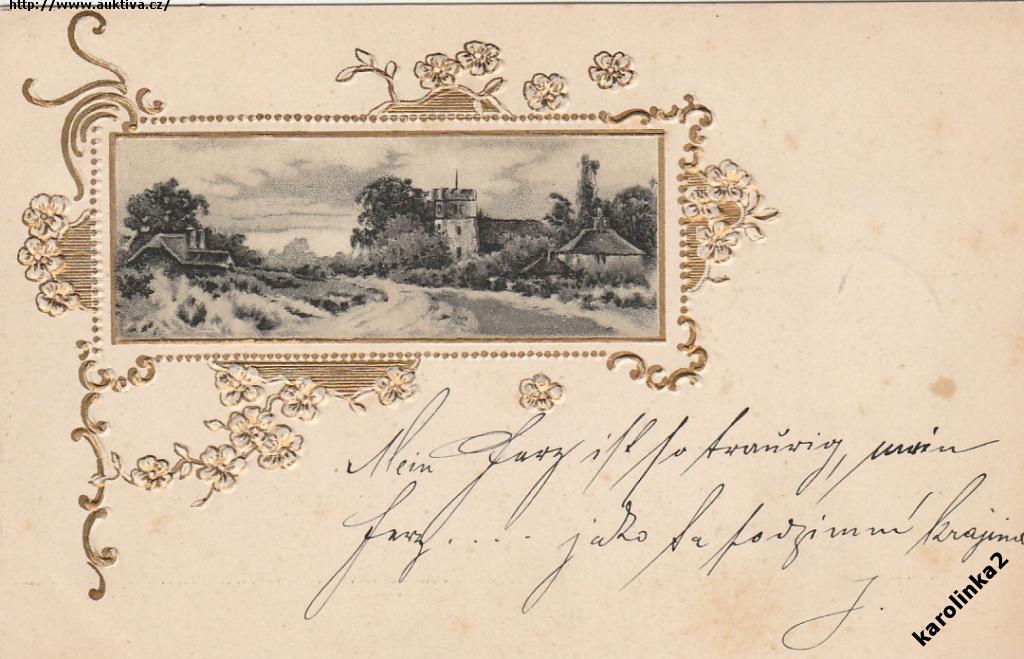 http://www.auktiva.cz/
Mein Herz ist so traurig, mein
Herz.... jako ta podzimní krajina
J.
karolinka2